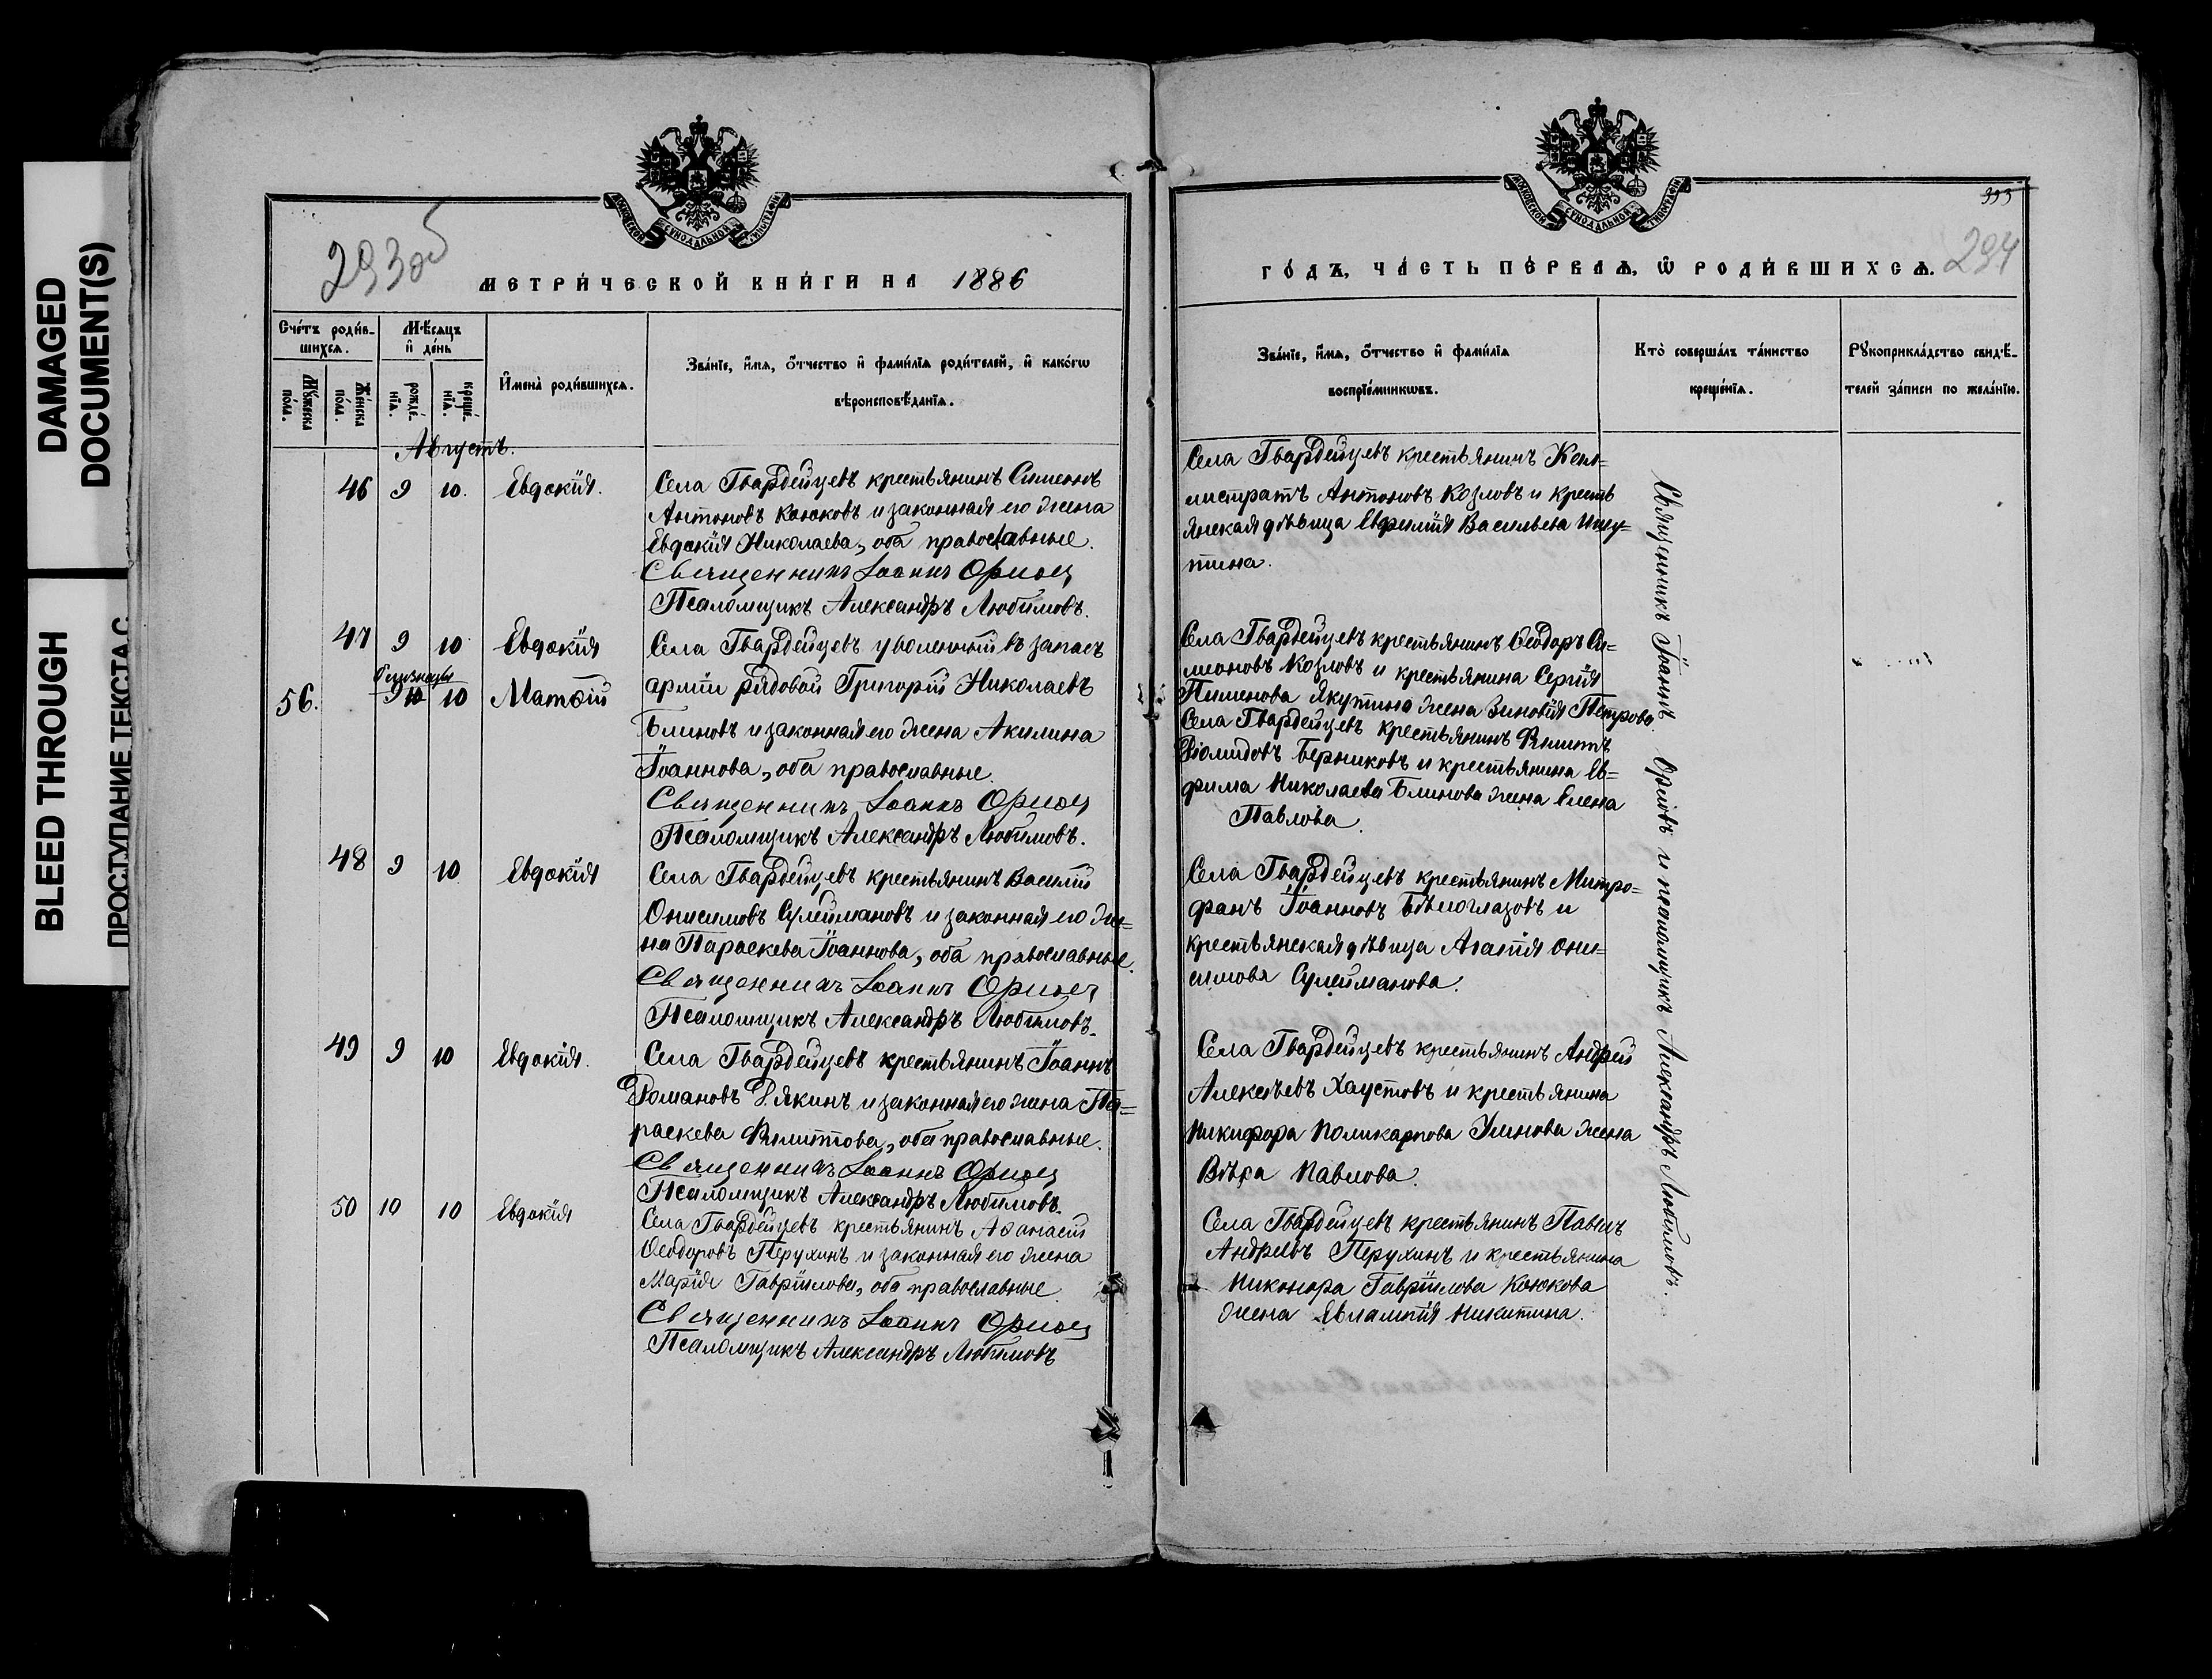 DAMAGED
DOCUMENT(S)
BLEED THROUGH
ПРОСТУПАНИЕ ТЕКСТА С
293об
МОСКОВСКОЙ СѴНОДАЛЬНОЙ ТИПОГРАФІИ
МЕТРИ́ЧЕСКОЙ КНИ́ГИ НА 1886
Сче́тъ роди́в-
шихсѧ.
Мѣ́сяцъ
и҆ де́нь
Му́жеска
по́ла.
Же́нска
по́ла.
рожде́-
нїѧ.
креще́-
нїѧ.
И҆мена̀ роди́вшихсѧ.
Зва́нїе, и҆́мѧ, ѻ҆́тчество и҆ фами́лїѧ роди́телей, и҆ како́гѡ
вѣроисповѣ́данїѧ.
Августъ.
46 9 10. Евдокія.
Села Гвардейцевъ крестьянинъ Симеонъ
Антоновъ Конюковъ и законная его жена
Евдокія Николаева, оба православные.
Священникъ Іоаннъ Орлов
Псаломщикъ Александръ Любимовъ.
47 9 10 Евдокія
Села Гвардейцевъ уволенный въ запасъ
близнецы
56. 9 10 10 Матѳій
арміи рядовой Григорій Николаевъ
Блиновъ и законная его жена Акилина
Іоаннова, оба православные.
Священникъ Іоаннъ Орлов
Псаломщикъ Александръ Любимовъ.
48 9 10 Евдокія
Села Гвардейцевъ крестьянинъ Василій
Онисимовъ Сулеймановъ и законная его же-
на Параскева Іоаннова, оба православные.
Священникъ Іоаннъ Орлов
Псаломщикъ Александръ Любимовъ.
49 9 10 Евдокія.
Села Гвардейцевъ крестьянинъ Іоаннъ
Романовъ Рякинъ и законная его жена Па-
раскева Филиппова, оба православные.
Священникъ Іоаннъ Орлов
Псаломщикъ Александръ Любимовъ.
50 10 10 Евдокія
Села Гвардейцевъ крестьянинъ Аѳанасій
Ѳеодоровъ Перухинъ и законная его жена
Марія Гавріилова, оба православные.
Священникъ Іоаннъ Орлов
Псаломщикъ Александръ Любимовъ
393
294
МОСКОВСКОЙ СѴНОДАЛЬНОЙ ТИПОГРАФІИ
ГО́ДЪ, ЧА́СТЬ ПЕ́РВАѦ, Ѡ҆ РОДИ́ВШИХСѦ.
Зва́нїе, и҆́мѧ, ѻ҆́тчество и҆ фами́лїѧ
воспрїе́мникѡвъ.
Кто̀ соверша́лъ та́инство
креще́нїѧ.
Рꙋкоприкла́дство свидѣ́-
телей за́писи по жела́нїю.
Села Гвардейцевъ крестьянинъ Кел-
листратъ Антоновъ Козловъ и кресть
янская дѣвица Евфимія Васильева
пина.
Села Гвардейцевъ крестьянинъ Ѳеодоръ Си-
меоновъ Козловъ и крестьянина Сергія
Пименова Якупина жена Зиновія Петрова.
Села Гвардейцевъ крестьянинъ Филиппъ
Діомидовъ Берниковъ и крестьянина Ев-
фима Николаева Блинова жена Елена
Павлова.
Села Гвардейцевъ крестьянинъ Митро-
фанъ Іоанновъ Бѣлоглазовъ и
крестьянская дѣвица Агапія Они-
симова Сулейманова.
Села Гвардейцевъ крестьянинъ Андрей
Алексѣевъ Хаустовъ и крестьянина
Никифора Поликарпова Уминова жена
Вѣра Павлова.
Села Гвардейцевъ крестьянинъ Павелъ
Андреевъ Перухинъ и крестьянина
Никонора Гавріилова Конюкова
жена Евлампія Никитина.
Священникъ Іоаннъ Орловъ и псаломщикъ Александръ Любимовъ.